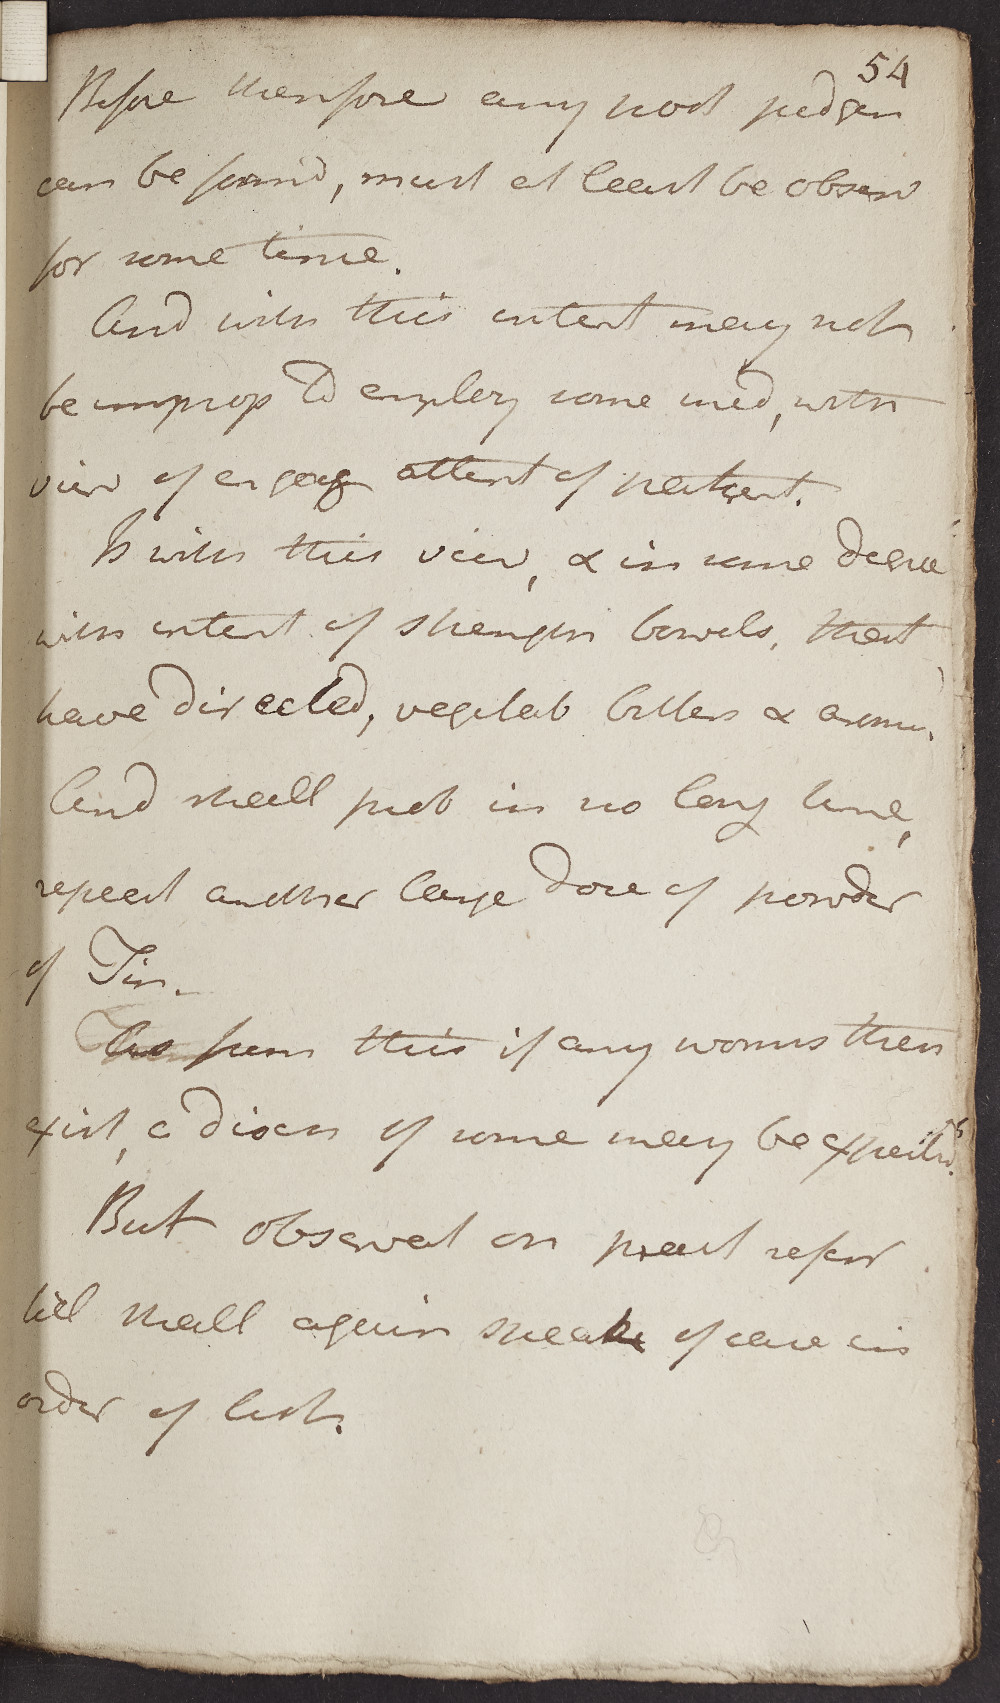 54
Before therefore any posit judgm
can be form'd, must at least be observ
for some time.
And with this intent may not
be improp to employ some med, with
view of engag attent of patient.
Is with this view, & in some degree
with intent of strength bowels, that
have directed, vegetab bitters & arom.
And shall prob in no long time,
repeat another large dose of powder
of Tin.
As from this if any worms then
exist, a disch of some may be expected.
But observat on pract refer
till shall again speak of case in
order of list.